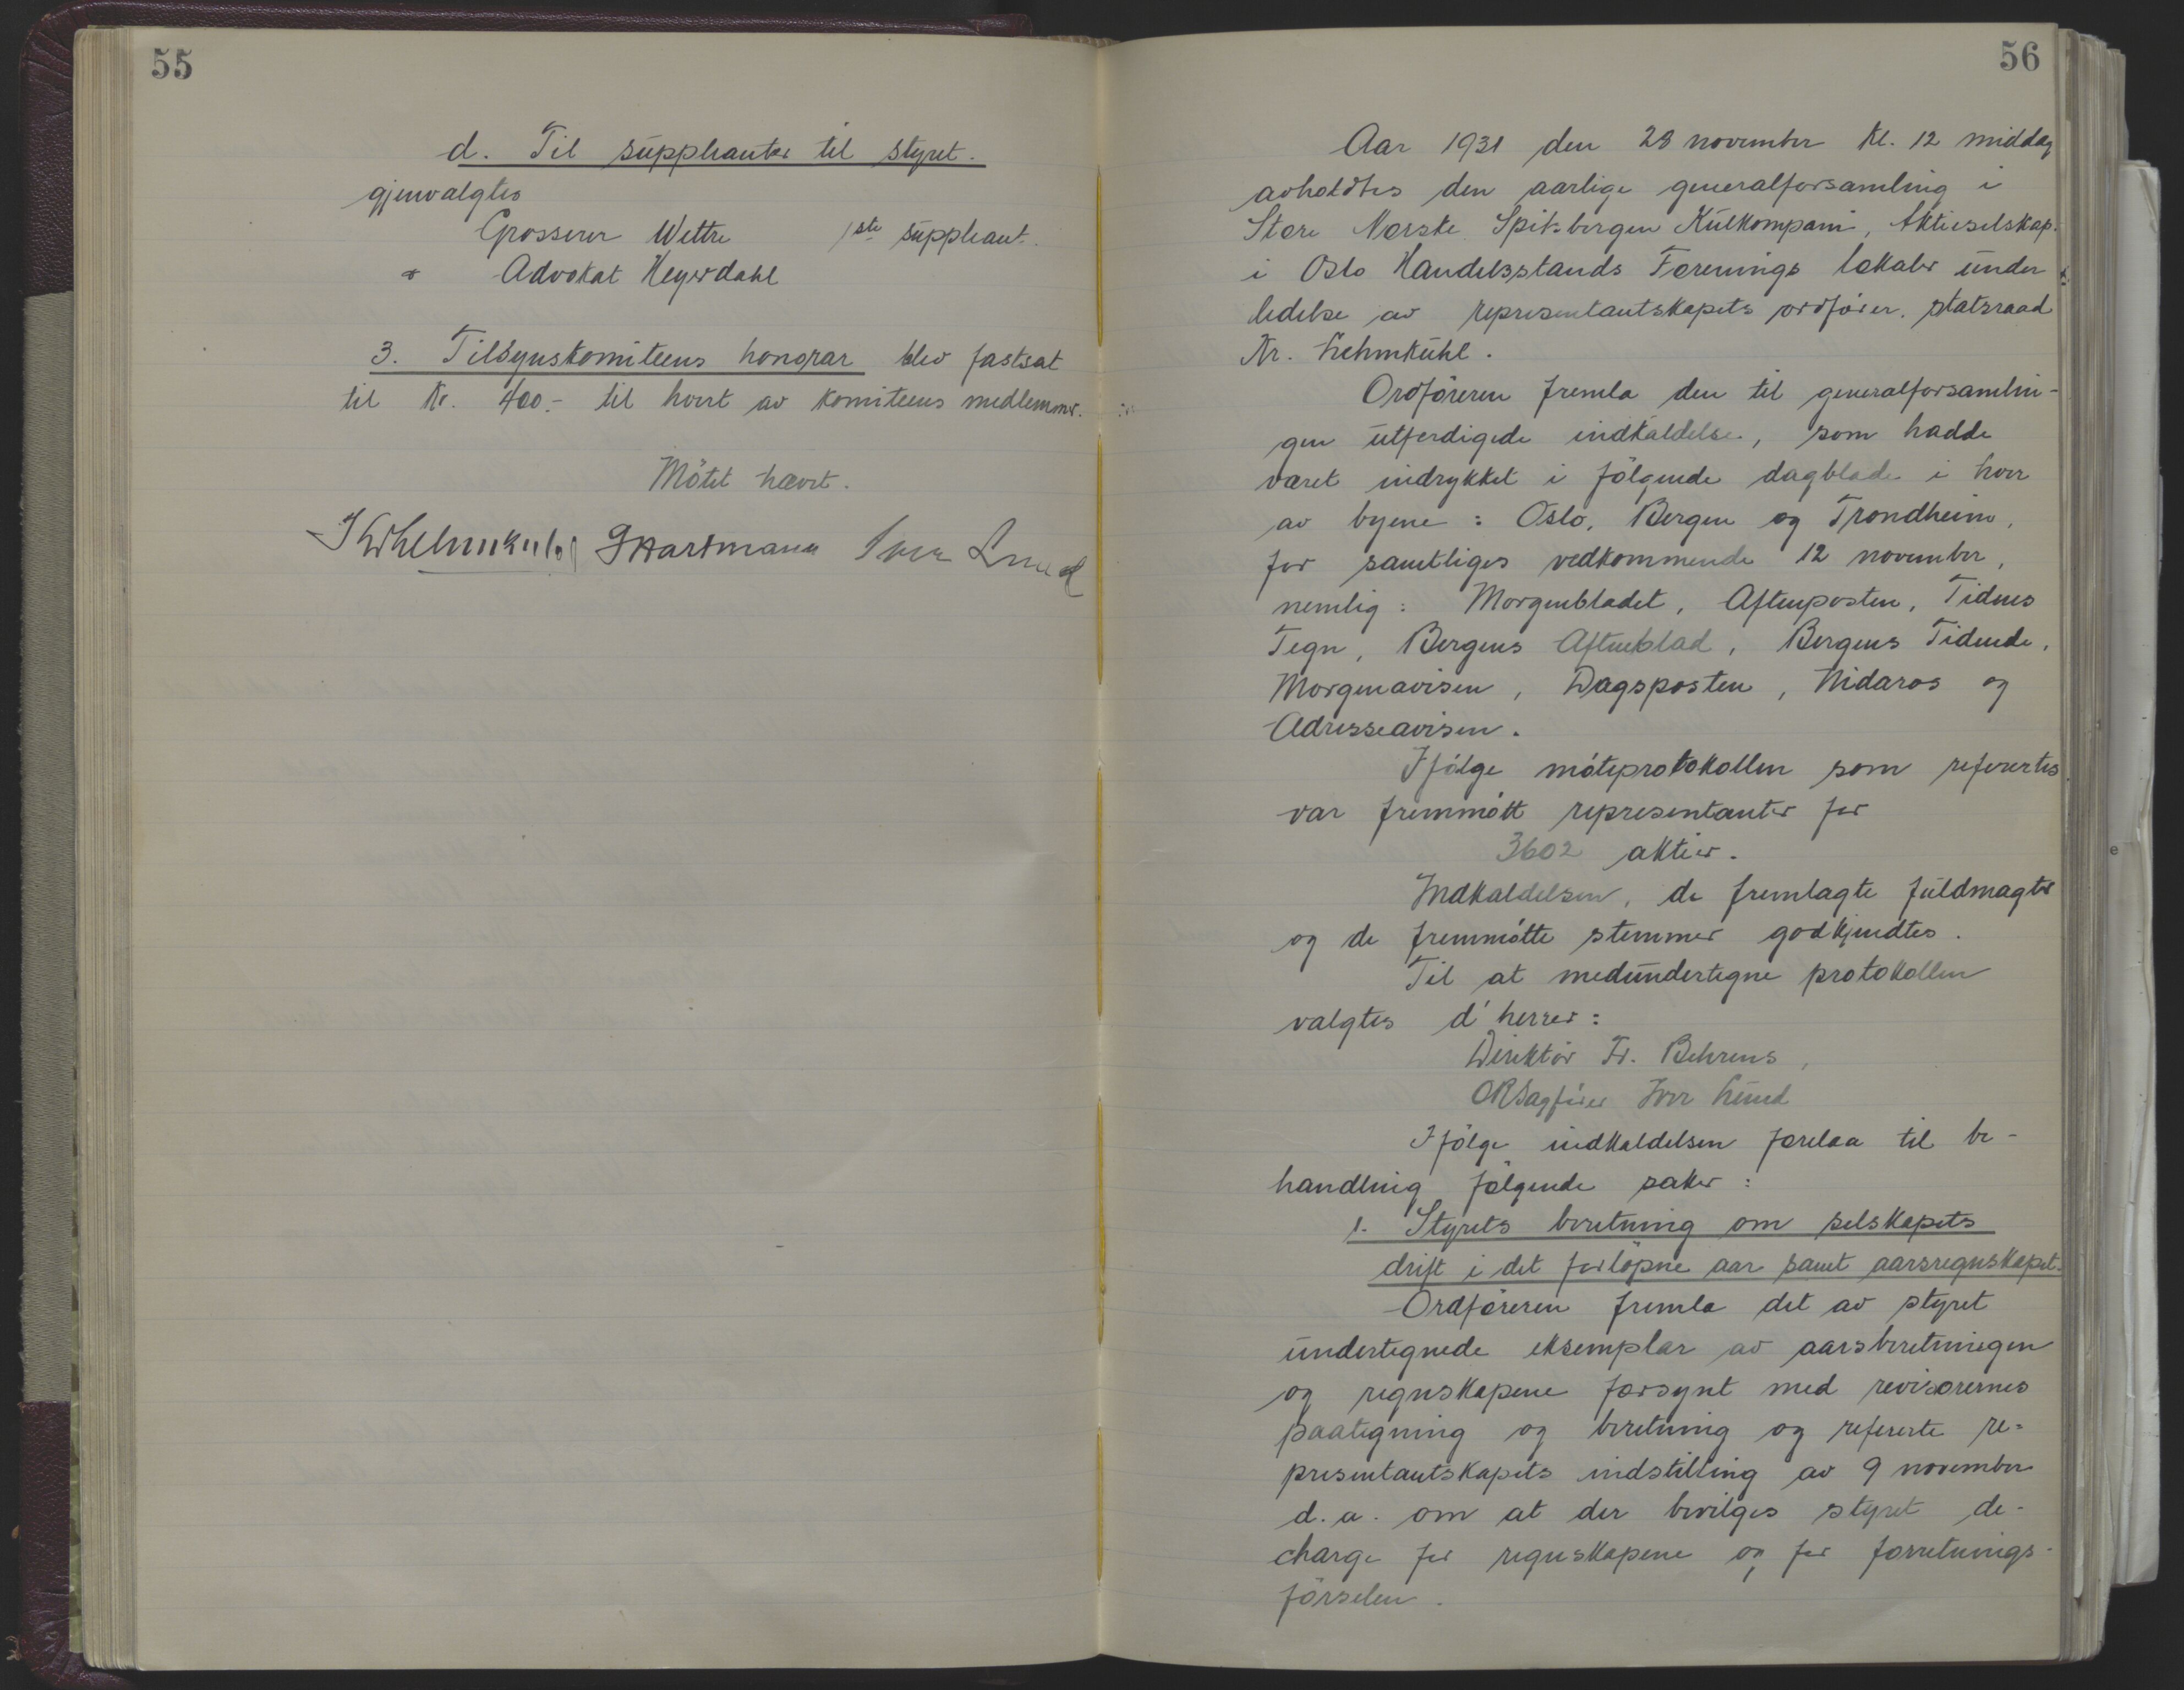 55
d. Til suppleanter til styret.
gjenvalgtes
Grosserer Wettre 1ste suppleant.
Advokat Heyerdahl
3. Tilsynskomiteens honorar blev fastsat
til Kr. 400.- til hvert av komiteens medlemmer.
Mötet hævet.
Kr Lehmkuhl G Hartmann Iver Lund
56
Aar 1931 den 28 november Kl. 12 middag
avholdtes den aarlige generalforsamling i
Store Norske Spitsbergen Kulkompani, Aktieselskap.
i Oslo Handelsstands Forenings lokaler under
ledelse av representantskapets ordfører, statsraad
Kr. Lehmkuhl.
Ordföreren fremla den til generalforsamlin-
gen utferdigede indkaldelse, som hadde
været indrykket i fölgende dagblade i hver
av byene: Oslo, Bergen og Trondheim,
for samtliges vedkommende 12 november,
nemlig: Morgenbladet, Aftenposten, Tidens
Tegn, Bergens Aftenblad, Bergens Tidende,
Morgenavisen, Dagsposten, Nidaros og
Adresseavisen.
Ifölge möteprotokollen som refertes
var fremmött representanter for
3602 aktier.
Indkaldelsen, de fremlagte fuldmagter
og de fremmötte stemmer godkjendtes.
Til at medundertegne protokollen
valgtes d'herrer:
Direktör Fr. Behrens,
ORSagförer Iver Lund
Ifölge indkaldelsen forelaa til be-
handling fölgende saker:
1. Styrets beretning om selskapets
drift i det forlöpne aar samt aarsregnskapet.
Ordföreren fremla det av styret
undertegnede eksemplar av aarsberetningen
og regnskapene forsynt med revisorernes
paategning og beretning og refererte re-
presentantskapets indstilling av 9 november
d.a. om at der bevilges styret de-
charge for regnskapene og for forretnings-
förselen.